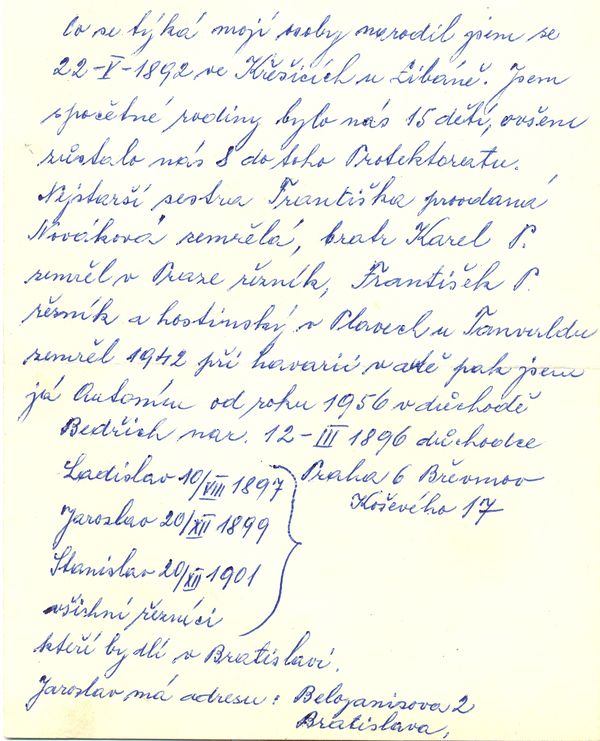 Co se týká mojí osoby narodil jsem se
22-V-1892 ve Křešicích u Libáně. Jsem
spočetné rodiny bylo nás 15 dětí, ovšem
zůstalo nás 8 do toho Protektoratu.
Nejstarší sestra Františka provdaná
Nováková zemřelá, bratr Karel P.
zemřel v Praze řezník, František P.
řezník a hostinský v Plavech u Tanvaldu
zemřel 1942 při havarii v autě pak jsem
já Antonín od roku 1956 v důchodě
Bedřich nar. 12-III 1896 důchodce
Ladislav 10/VIII 1897 Praha 6 Břevnov
Koševého 17
Jaroslav 20/XII 1899
Stanislav 20/XII 1901
všichni řezníci
kteří bydlí v Bratislavi.
Jaroslav má adresu: Belojanisova 2
Bratislava,